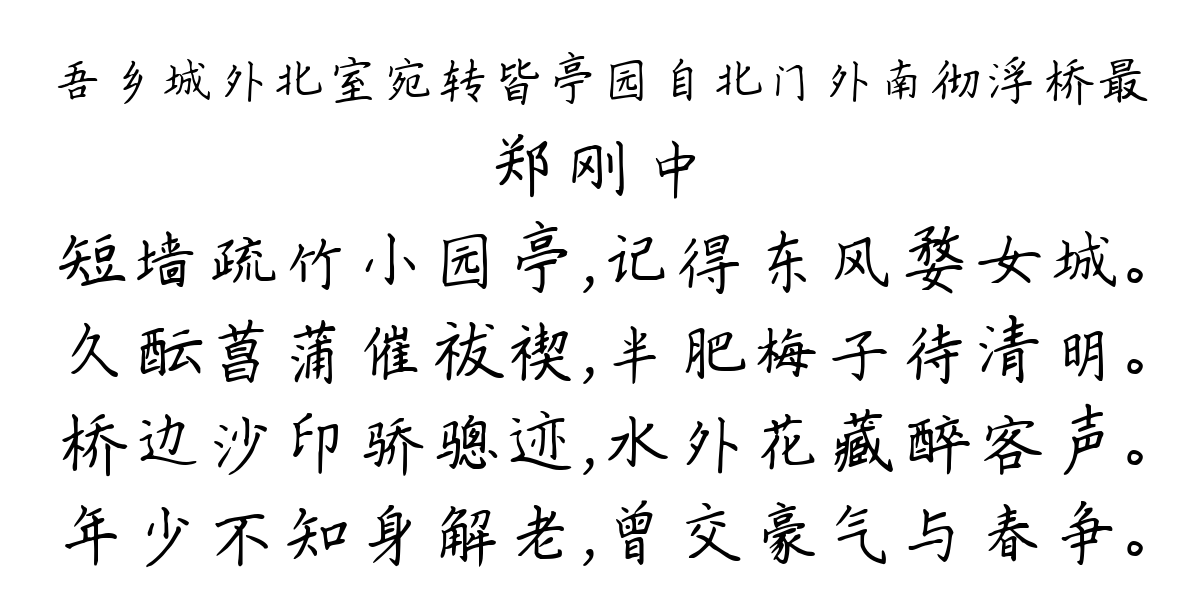 吾乡城外北室宛转皆亭园自北门外南彻浮桥最
郑刚中
短墙疏竹小园亭,记得东风婺女城。
久酝菖蒲催祓禊,半肥梅子待清明。
桥边沙印骄骢迹,水外花藏醉客声。
年少不知身解老,曾交豪气与春争。